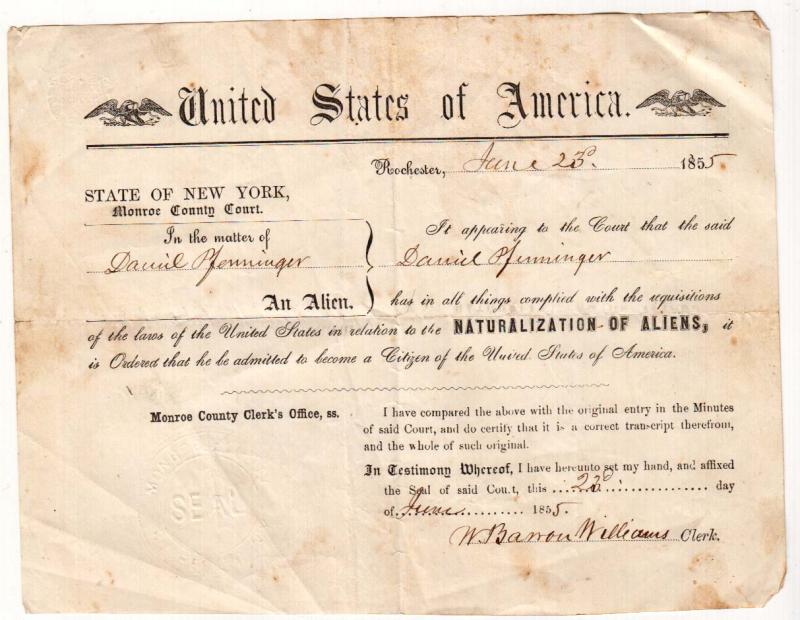 United States of America.
Rochester, June 23d. 1855
STATE OF NEW YORK,
Monroe County Court.
In the matter of
Daniel Pfenninger
An Alien.
It appearing to the Court that the said
Daniel Pfenninger
has in all things complied with the requisitions
of the laws of the United States in relation to the NATURALIZATION OF ALIENS, it
is Ordered that he be admitted to become a Citizen of the United States of America.
Monroe County Clerk's Office, ss.
I have compared the above with the original entry in the Minutes
of said Court, and do certify that it is a correct transcript therefrom,
and the whole of such original.
In Testimony Whereof, I have hereunto set my hand, and affixed
the Seal of said Court, this 23d day
of June 1855.
W. Barron Williams Clerk.
SEAL